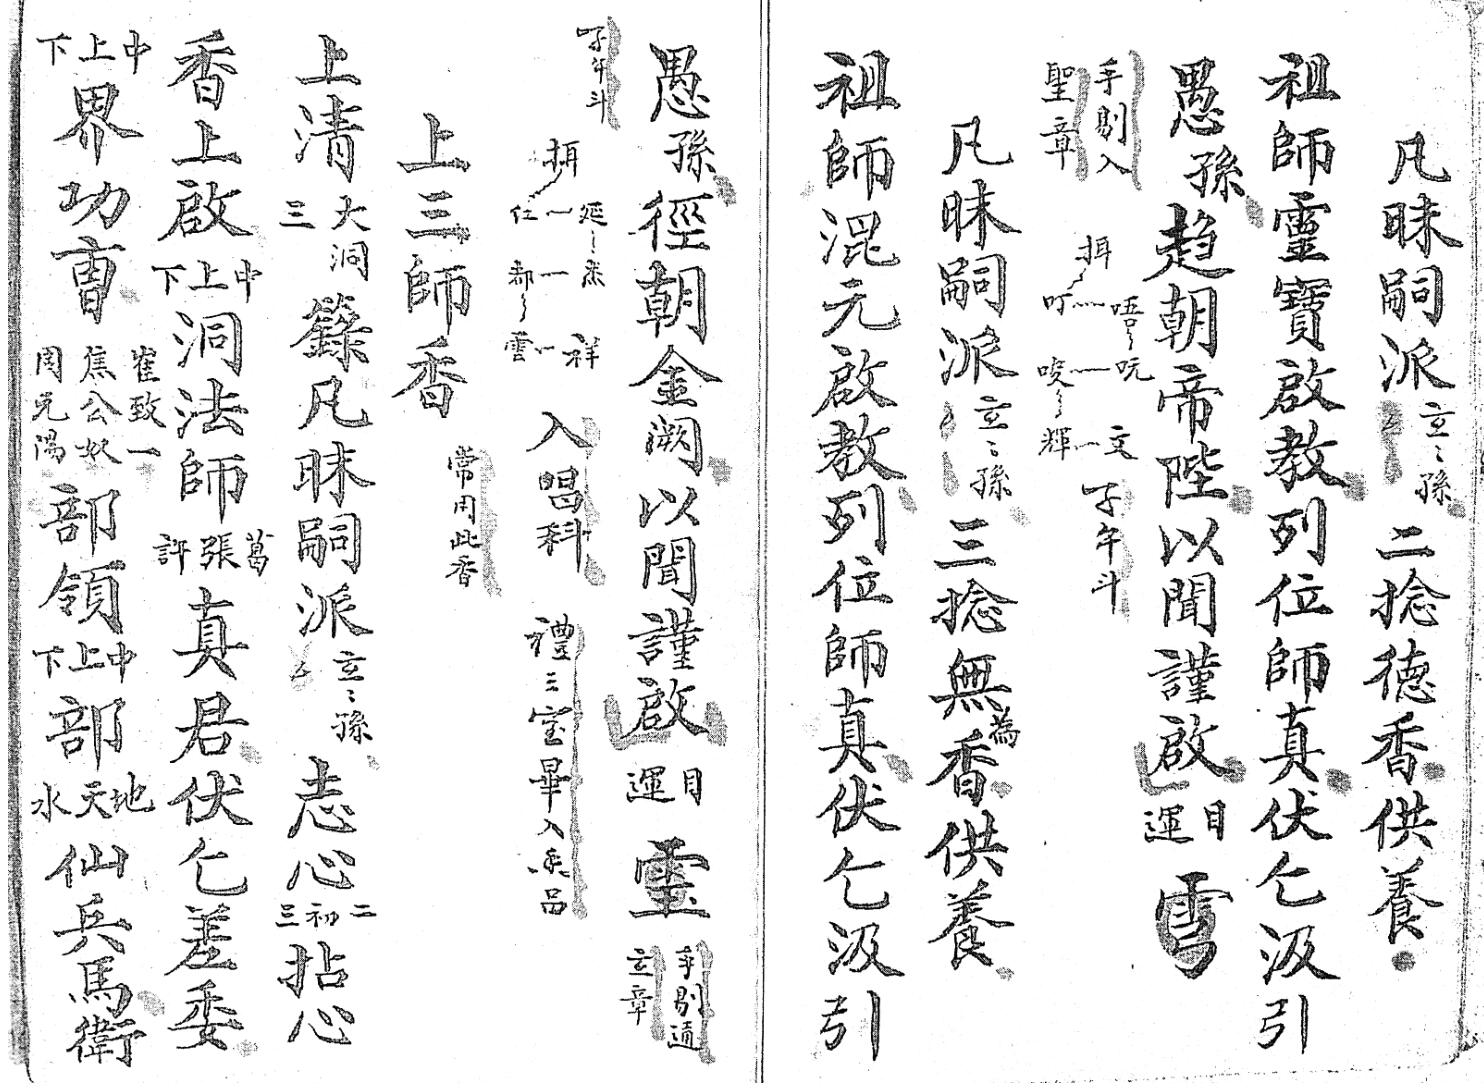 凡昧嗣派 立〻孫 二捻德香供養
祖師靈寶啟教列位師真伏乞汲引
愚孫趨朝帝陛以聞謹啟 目運 雩
手剔入聖章 挕 叮 唔 咬 吭 輝 文 子午斗
凡昧嗣派 立〻孫 三捻無為香供養
祖師混元啟教列位師真伏乞汲引
愚孫徑朝金闕以聞謹啟 目運 𩄇 手剔迺立章
子午斗 挕 仁 延 都 雲 祥 入唱科 禮三宝畢入香品
上三師香 常用此香
上清 大洞三 籙凡昧嗣派 立〻孫 志心 二初三 拈心
香上啟 中上下 洞法師 葛張許 真君伏乞差委
中上下 界功曹 崔致一 焦公奴 周元陽 部領 中上下 部 地天水 仙兵馬衛